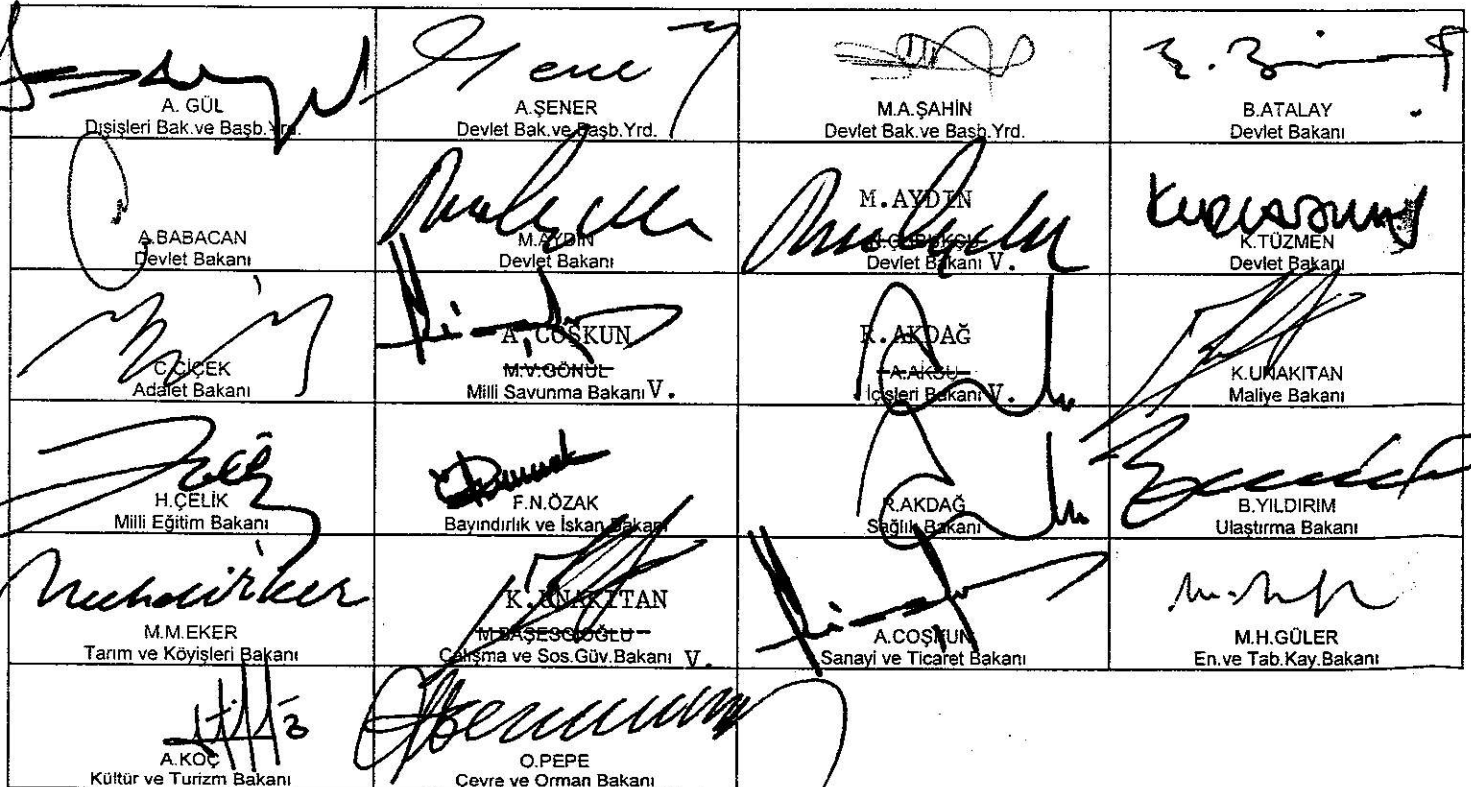 A. GÜL
Dışişleri Bak.ve Başb.Yrd.
A.ŞENER
Devlet Bak.ve Başb.Yrd.
M.A.ŞAHİN
Devlet Bak.ve Başb.Yrd.
B.ATALAY
Devlet Bakanı
A.BABACAN
Devlet Bakanı
M.AYDIN
Devlet Bakanı
M.AYDIN
N.ÇUBUKÇU
Devlet Bakanı V.
K.TÜZMEN
Devlet Bakanı
C.ÇİÇEK
Adalet Bakanı
A.COŞKUN
M.V.GÖNÜL
Milli Savunma Bakanı V.
R.AKDAĞ
A.AKSU
İçişleri Bakanı V.
K.UNAKITAN
Maliye Bakanı
H.ÇELİK
Milli Eğitim Bakanı
F.N.ÖZAK
Bayındırlık ve İskan Bakanı
R.AKDAĞ
Sağlık Bakanı
B.YILDIRIM
Ulaştırma Bakanı
M.M.EKER
Tarım ve Köyişleri Bakanı
K.UNAKITAN
M.BAŞESGİOĞLU
Çalışma ve Sos.Güv.Bakanı V.
A.COŞKUN
Sanayi ve Ticaret Bakanı
M.H.GÜLER
En.ve Tab.Kay.Bakanı
A.KOÇ
Kültür ve Turizm Bakanı
O.PEPE
Çevre ve Orman Bakanı